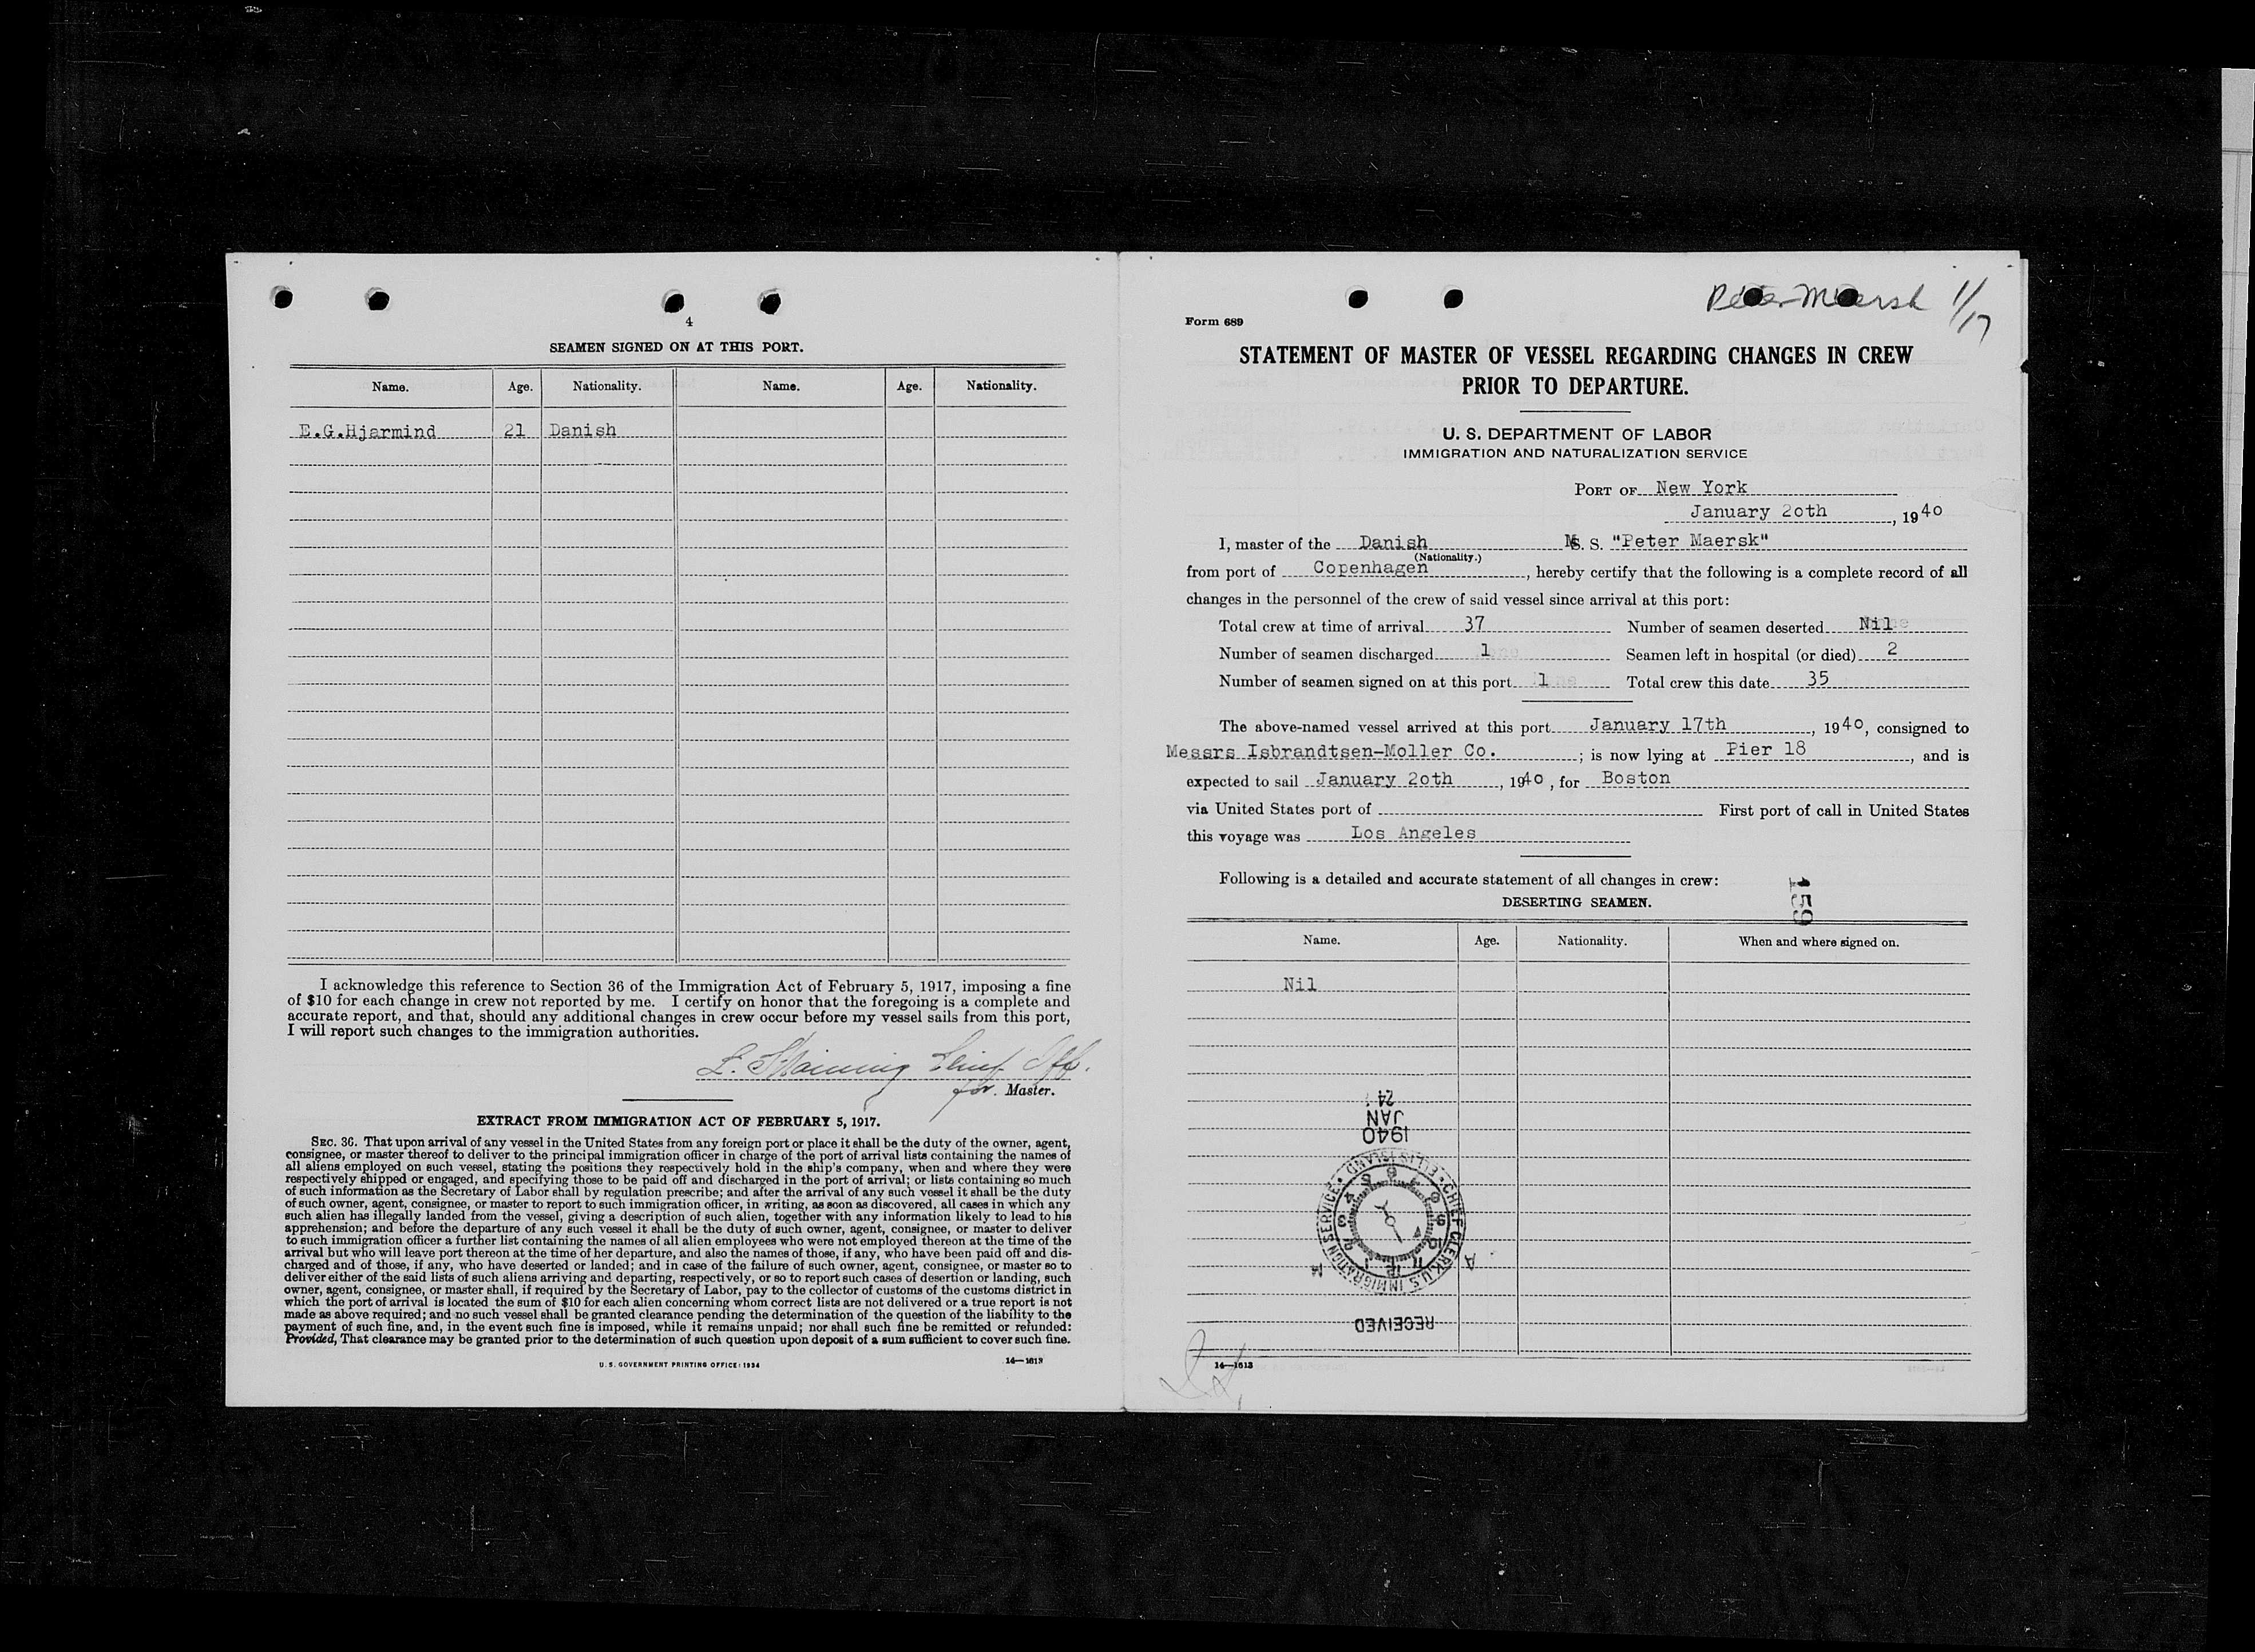 4
SEAMEN SIGNED ON AT THIS PORT.
Name. Age. Nationality. Name. Age. Nationality.
E.G.Hjarmind 21 Danish
I acknowledge this reference to Section 36 of the Immigration Act of February 5, 1917, imposing a fine
of $10 for each change in crew not reported by me. I certify on honor that the foregoing is a complete and
accurate report, and that, should any additional changes in crew occur before my vessel sails from this port,
I will report such changes to the immigration authorities.
Chief Off.
for Master.
EXTRACT FROM IMMIGRATION ACT OF FEBRUARY 5, 1917.
SEC. 36. That upon arrival of any vessel in the United States from any foreign port or place it shall be the duty of the owner, agent,
consignee, or master thereof to deliver to the principal immigration officer in charge of the port of arrival lists containing the names of
all aliens employed on such vessel, stating the positions they respectively hold in the ship's company, when and where they were
respectively shipped or engaged, and specifying those to be paid off and discharged in the port of arrival; or lists containing so much
of such information as the Secretary of Labor shall by regulation prescribe; and after the arrival of any such vessel it shall be the duty
of such owner, agent, consignee, or master to report to such immigration officer, in writing, as soon as discovered, all cases in which any
such alien has illegally landed from the vessel, giving a description of such alien, together with any information likely to lead to his
apprehension; and before the departure of any such vessel it shall be the duty of such owner, agent, consignee, or master to deliver
to such immigration officer a further list containing the names of all alien employees who were not employed thereon at the time of the
arrival but who will leave port thereon at the time of her departure, and also the names of those, if any, who have been paid off and dis-
charged and of those, if any, who have deserted or landed; and in case of the failure of such owner, agent, consignee, or master so to
deliver either of the said lists of such aliens arriving and departing, respectively, or so to report such cases of desertion or landing, such
owner, agent, consignee, or master shall, if required by the Secretary of Labor, pay to the collector of customs of the customs district in
which the port of arrival is located the sum of $10 for each alien concerning whom correct lists are not delivered or a true report is not
made as above required; and no such vessel shall be granted clearance pending the determination of the question of the liability to the
payment of such fine, and, in the event such fine is imposed, while it remains unpaid; nor shall such fine be remitted or refunded:
Provided, That clearance may be granted prior to the determination of such question upon deposit of a sum sufficient to cover such fine.
U. S. GOVERNMENT PRINTING OFFICE: 1934 14—1613
Peter Maersk 1/17
Form 689
STATEMENT OF MASTER OF VESSEL REGARDING CHANGES IN CREW
PRIOR TO DEPARTURE.
U. S. DEPARTMENT OF LABOR
IMMIGRATION AND NATURALIZATION SERVICE
PORT OF New York
January 2oth, 1940
I, master of the Danish M. S. "Peter Maersk"
(Nationality.)
from port of Copenhagen, hereby certify that the following is a complete record of all
changes in the personnel of the crew of said vessel since arrival at this port:
Total crew at time of arrival 37 Number of seamen deserted Nil
Number of seamen discharged 1 Seamen left in hospital (or died) 2
Number of seamen signed on at this port 1 Total crew this date 35
The above-named vessel arrived at this port January 17th, 1940, consigned to
Messrs Isbrandtsen-Moller Co. ; is now lying at Pier 18, and is
expected to sail January 2oth, 1940, for Boston
via United States port of First port of call in United States
this voyage was Los Angeles
Following is a detailed and accurate statement of all changes in crew:
159
DESERTING SEAMEN.
Name. Age. Nationality. When and where signed on.
Nil
24
JAN
1940
CHIEF CLERK, U.S. IMMIGRATION SERVICE • ELLIS ISLAND •
A M
RECEIVED
14—1613